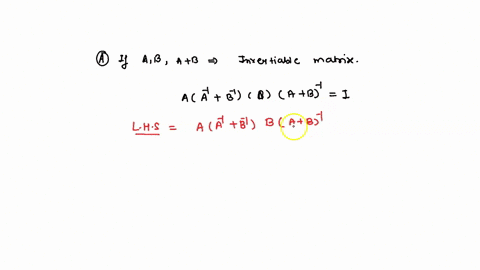 (A) If A, B, A+B ⇒ Invertiable matrix.
A(A⁻¹ + B⁻¹)(B)(A+B)⁻¹ = I
L.H.S = A(A⁻¹ + B⁻¹) B(A+B)⁻¹